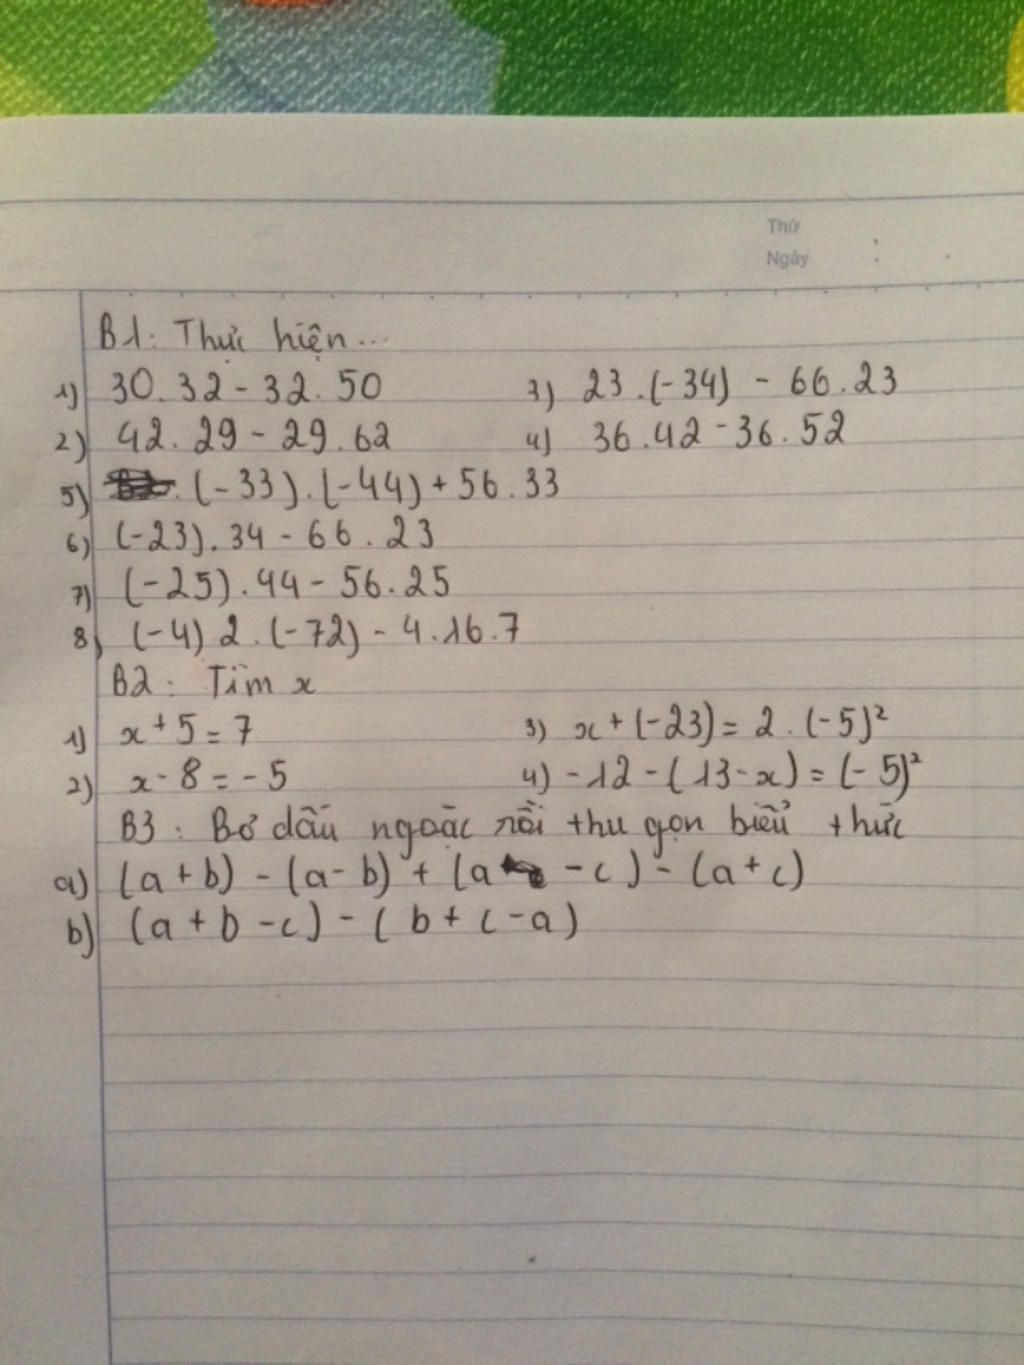 Thứ :
Ngày :
B1: Thực hiện...
1) 30.32 - 32.50 3) 23.(-34) - 66.23
2) 42.29 - 29.62 4) 36.42 - 36.52
5) (-33).(-44) + 56.33
6) (-23).34 - 66.23
7) (-25).44 - 56.25
8) (-4) 2.(-72) - 4.16.7
B2: Tìm x
1) x + 5 = 7 3) x + (-23) = 2.(-5)²
2) x - 8 = -5 4) -12 - (13 - x) = (-5)²
B3: Bỏ dấu ngoặc rồi thu gọn biểu thức
a) (a + b) - (a - b) + (a - c) - (a + c)
b) (a + b - c) - (b + c - a)